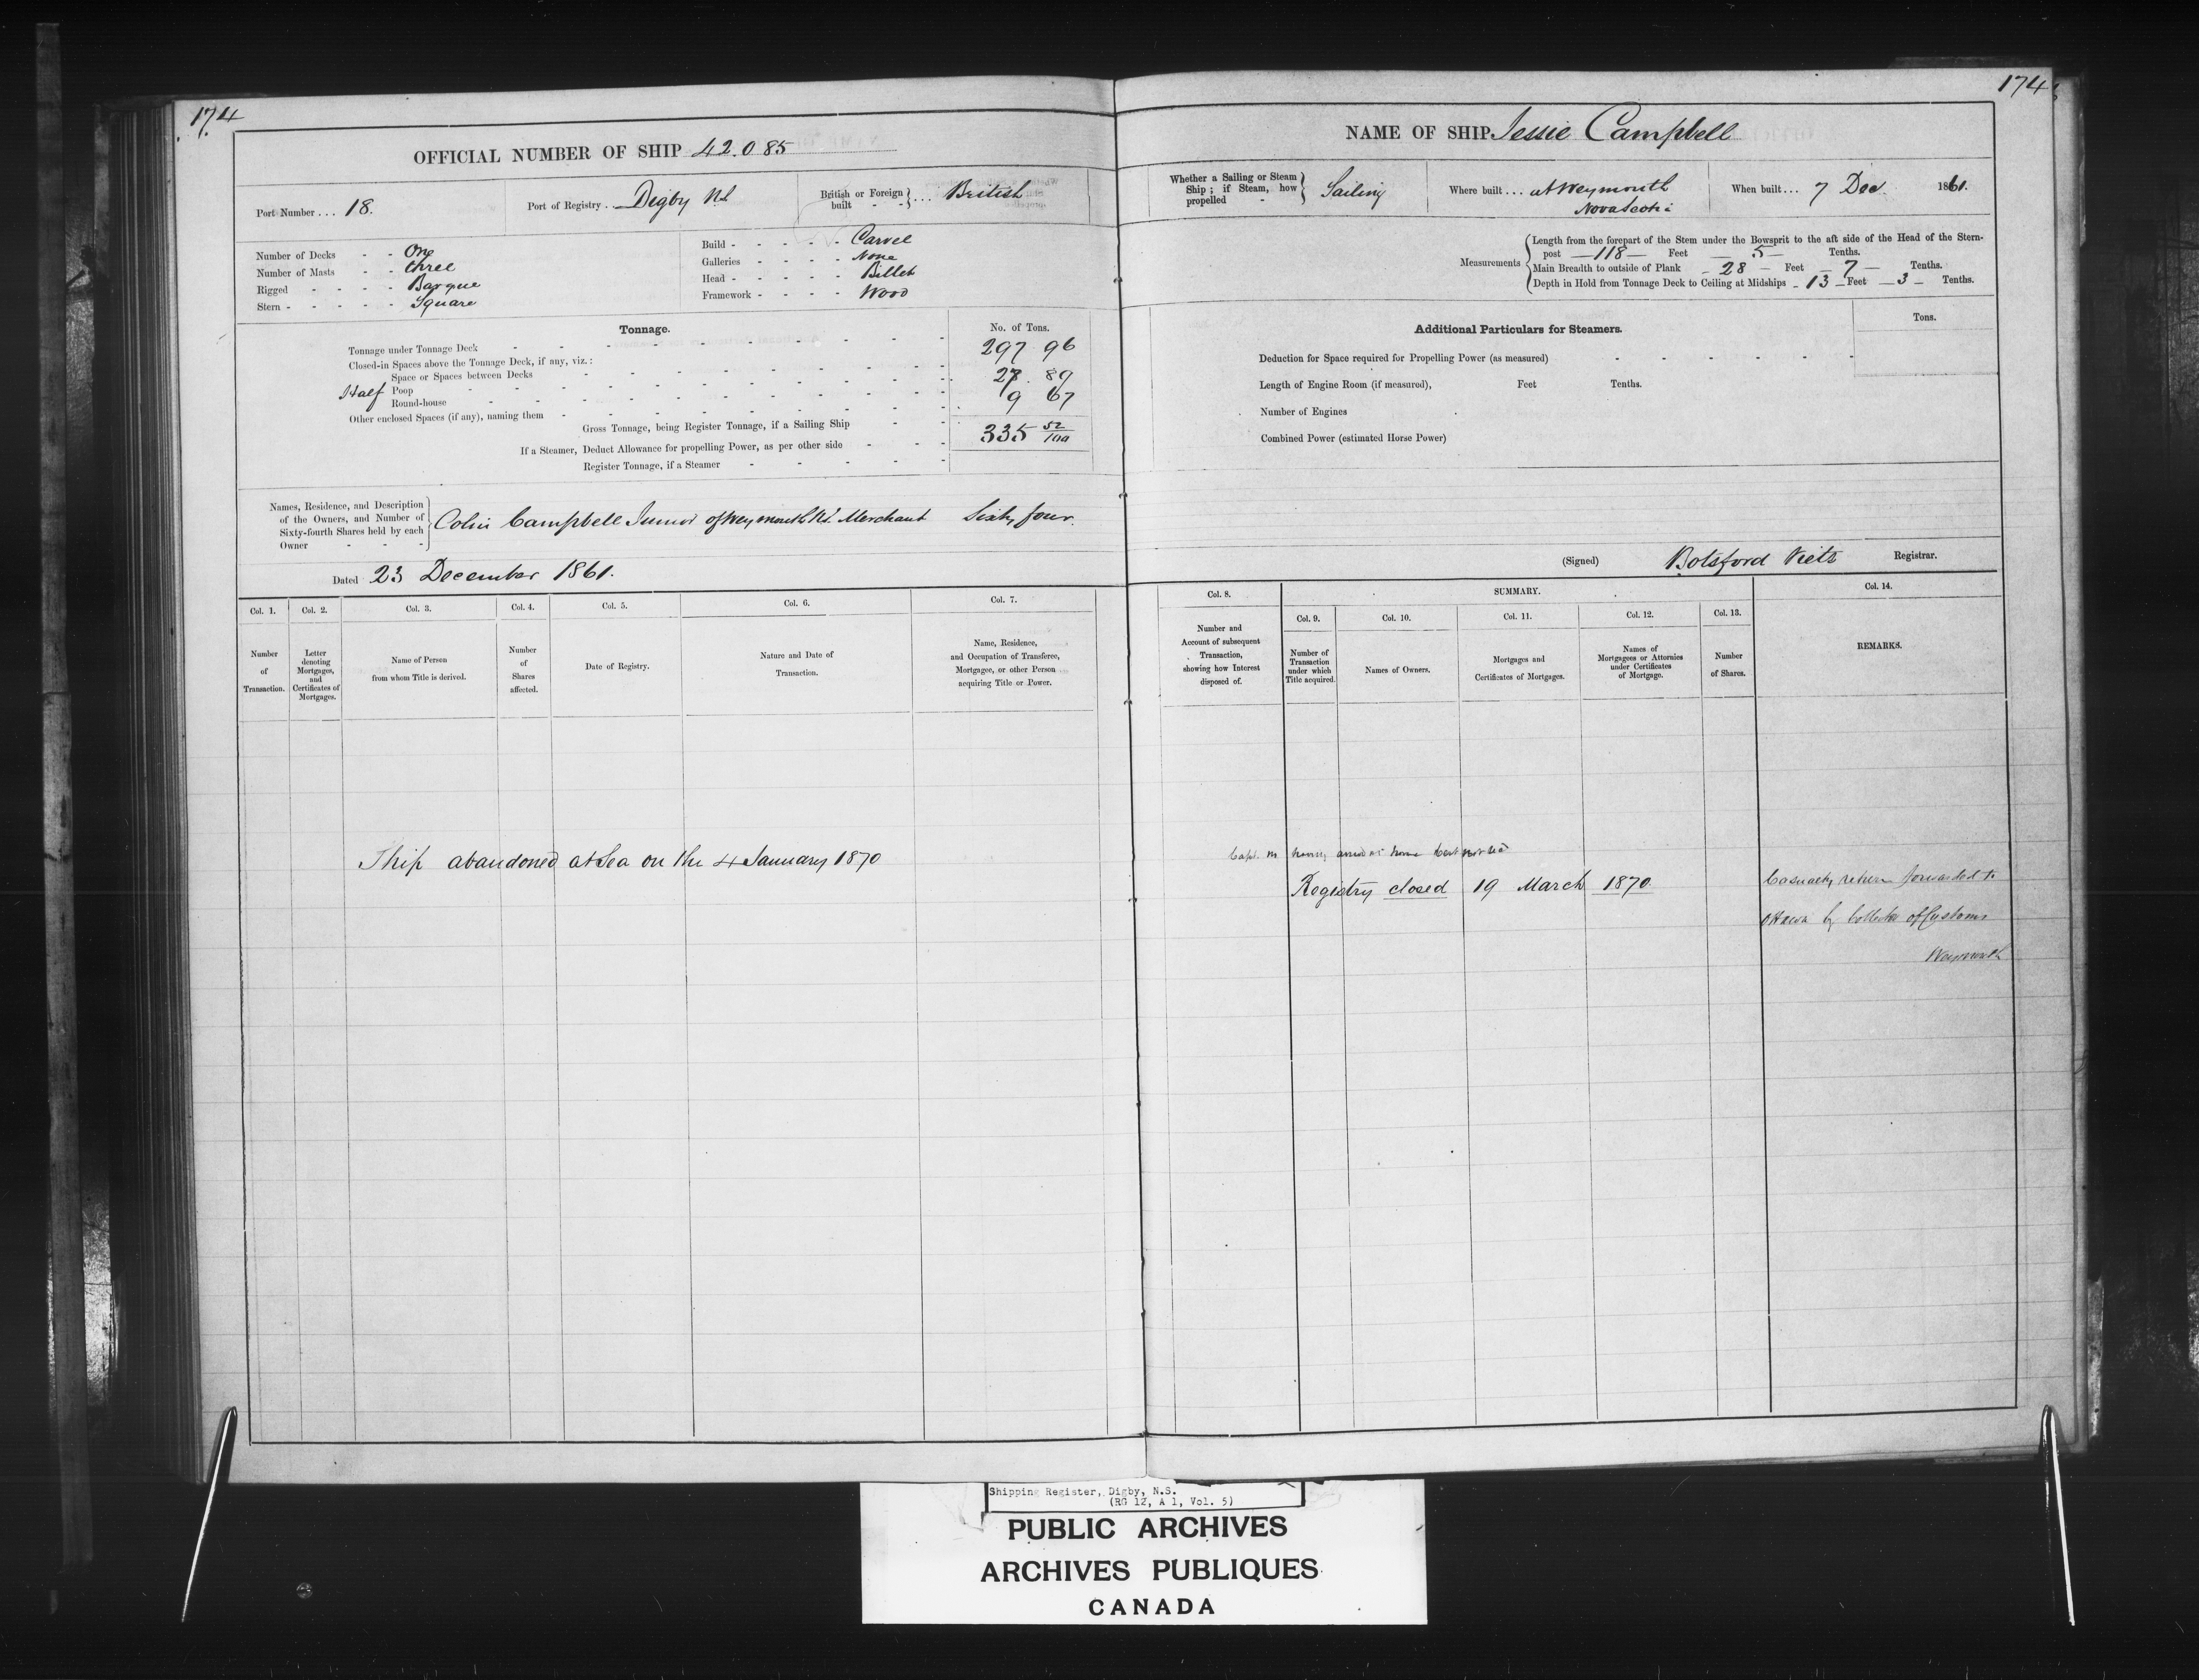 174
174
OFFICIAL NUMBER OF SHIP 42.085
Port Number ... 18.
Port of Registry . Digby NS
British or Foreign built - - } ... British
Number of Decks - - One
Number of Masts - - three
Rigged - - - - Barque
Stern - - - - - Square
Build - - - - - Carvel
Galleries - - - - None
Head - - - - - Billet
Framework - - - - Wood
Tonnage.
No. of Tons.
Tonnage under Tonnage Deck 297 96
Closed-in Spaces above the Tonnage Deck, if any, viz.:
Space or Spaces between Decks
Half Poop 27. 89
Round-house 9 67
Other enclosed Spaces (if any), naming them
Gross Tonnage, being Register Tonnage, if a Sailing Ship 335 52/100
If a Steamer, Deduct Allowance for propelling Power, as per other side
Register Tonnage, if a Steamer
Names, Residence, and Description
of the Owners, and Number of
Sixty-fourth Shares held by each
Owner - - -
Colin Campbell Junior of Weymouth NS. Merchant Sixty four.
Dated 23 December 1861.
Col. 1. Col. 2. Col. 3. Col. 4. Col. 5. Col. 6. Col. 7.
Number of Transaction.
Letter denoting Mortgages, and Certificates of Mortgages.
Name of Person from whom Title is derived.
Number of Shares affected.
Date of Registry.
Nature and Date of Transaction.
Name, Residence, and Occupation of Transferee, Mortgagee, or other Person acquiring Title or Power.
Ship abandoned at Sea on the 4 January 1870
NAME OF SHIP Jessie Campbell
Whether a Sailing or Steam Ship; if Steam, how propelled - } Sailing
Where built ... at Weymouth
Nova Scotia
When built ... 7 Dec. 1861.
Measurements
Length from the forepart of the Stem under the Bowsprit to the aft side of the Head of the Stern-
post — 118 — Feet — 5 — Tenths.
Main Breadth to outside of Plank - 28 — Feet — 7 — Tenths.
Depth in Hold from Tonnage Deck to Ceiling at Midships - 13 - Feet — 3 - Tenths.
Additional Particulars for Steamers.
Tons.
Deduction for Space required for Propelling Power (as measured)
Length of Engine Room (if measured), Feet Tenths.
Number of Engines
Combined Power (estimated Horse Power)
(Signed) Botsford Viets Registrar.
Col. 8. SUMMARY. Col. 14.
Col. 9. Col. 10. Col. 11. Col. 12. Col. 13.
Number and Account of subsequent Transaction, showing how Interest disposed of.
Number of Transaction under which Title acquired.
Names of Owners.
Mortgages and Certificates of Mortgages.
Names of Mortgagees or Attornies under Certificates of Mortgage.
Number of Shares.
REMARKS.
Registry closed 19 March 1870
Casualty return forwarded to
Ottawa by Collector of Customs
Weymouth
Shipping Register, Digby, N.S.
(RG 12, A 1, Vol. 5)
PUBLIC ARCHIVES
ARCHIVES PUBLIQUES
CANADA